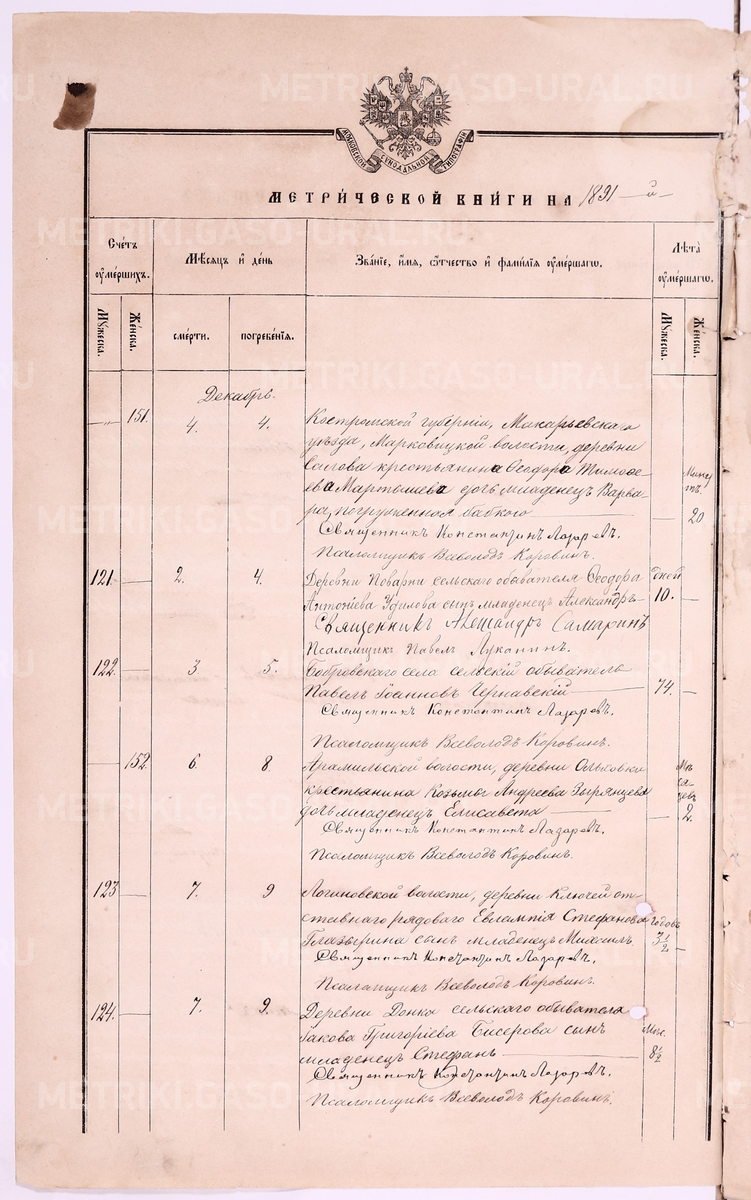 METRIKI.GASO-URAL.RU
МОСКОВСКОЙ СѴНОДАЛЬНОЙ ТИПОГРАФІИ
МЕТРИ́ЧЕСКОЙ КНИ́ГИ НА 1891-й
Сче́тъ ᲂу҆ме́ршихъ.
Мѣ́сяцъ и҆ де́нь
Зва́нїе, и҆́мя, ѻ҆́тчество и҆ фами́лїя ᲂу҆ме́ршагѡ.
Лѣ́та ᲂу҆ме́ршагѡ.
Мꙋ́жеска.
Же́нска.
сме́рти.
погребе́нїѧ.
Мꙋ́жеска.
Же́нска.
Декабрь.
151. 4. 4. Костромской губерніи, Макарьевскаго
уѣзда, Марковицкой волости, деревни
крестьянина Ѳеодора Тимоѳе-
ева Мартышева дочь младенецъ Варва- Мину тъ.
ра, погруженная бабкою 20
Священникъ Константинъ Лазаревъ.
Псаломщикъ Всеволодъ Коровинъ.
121 2. 4. Деревни Поварни сельскаго обывателя Ѳеодора дней
Антоніева Удилова сынъ младенецъ Александръ 10.
Священникъ Александръ Самаринъ
Псаломщикъ Павелъ Луканинъ.
122. 3. 5. Бобровскаго села сельскій обыватель
Павелъ Іоанновъ Чернавскій 74.
Священникъ Константинъ Лазаревъ.
Псаломщикъ Всеволодъ Коровинъ.
152. 6. 8. Арамильской волости, деревни Ольховки
крестьянина Козьмы Андреева Зырянцева Мѣ ся- цовъ
дочь младенецъ Елисавета 2.
Священникъ Константинъ Лазаревъ.
Псаломщикъ Всеволодъ Коровинъ.
123 7. 9 Логиновской волости, деревни Ключей от-
ставнаго рядоваго Евлампія Стефанова годовъ
Глазырина сынъ младенецъ Михаилъ. 3 1/2
Священникъ Константинъ Лазаревъ.
Псаломщикъ Всеволодъ Коровинъ.
124. 7. 9. Деревни сельскаго обывателя
Іакова Григоріева Бисерова сынъ Мѣс.
младенецъ Стефанъ 8 1/2
Священникъ Константинъ Лазаревъ.
Псаломщикъ Всеволодъ Коровинъ.